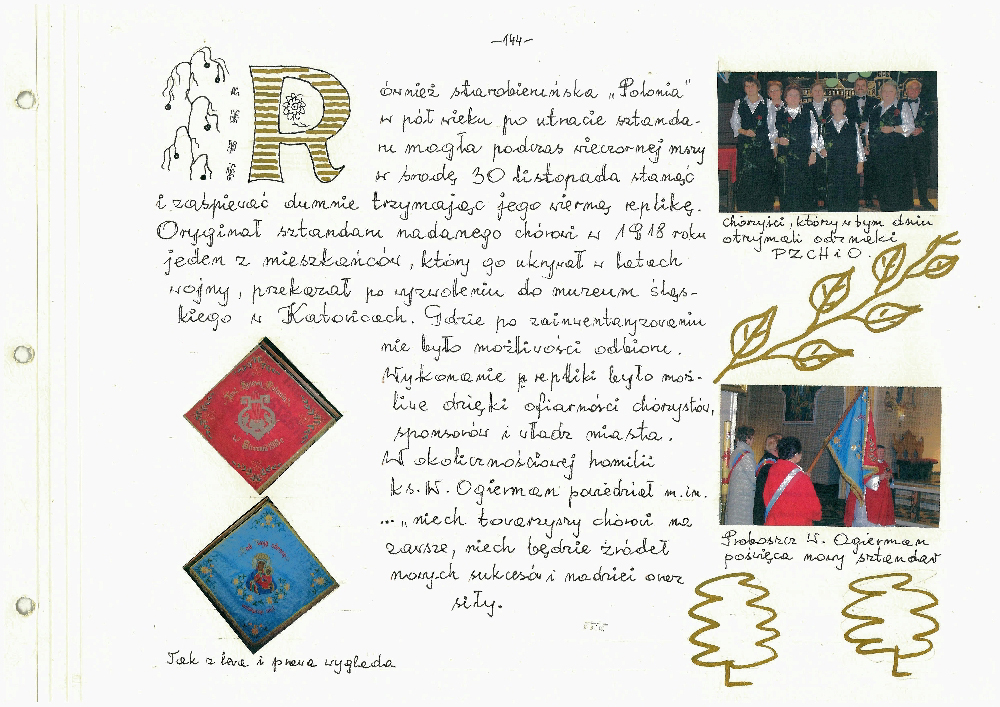 -144-
Również starobieruńska „Polonia"
w pół wieku po utracie sztanda-
ru mogła podczas wieczornej mszy
w środę 30 listopada stanąć
i zaśpiewać dumnie trzymając jego wierną replikę.
Oryginał sztandaru nadanego chórowi w 1918 roku
jeden z mieszkańców, który go ukrywał w latach
wojny, przekazał po wyzwoleniu do muzeum śląs-
kiego w Katowicach. Gdzie po zainwentaryzowaniu
nie było możliwości odbioru.
Wykonanie repliki było moż-
liwe dzięki ofiarności chórzystów,
sponsorów i władz miasta.
W okolicznościowej homilii
ks. W. Ogierman powiedział m.in.
... „niech towarzyszy chórowi na
zawsze, niech będzie źródeł
nowych sukcesów i nadziei oraz
siły.
Tak z lewa i prawa wygląda
chórzyści, którzy w tym dniu
otrzymali odznaki
PZCHiO.
Proboszcz W. Ogierman
poświęca nowy sztandar